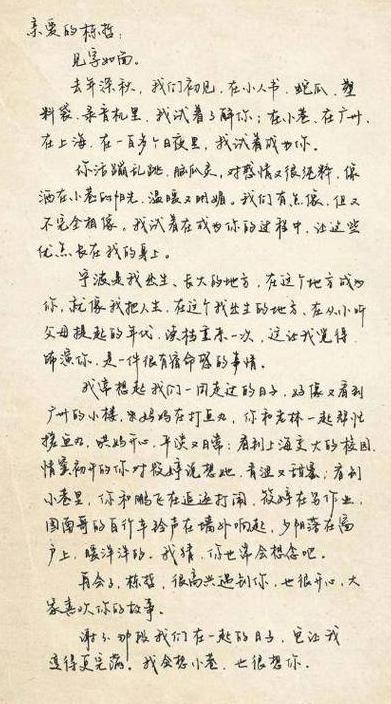 亲爱的栋哲:
见字如面。
去年深秋,我们初见,在小人书、蛇瓜、塑
料袋、录音机里,我试着了解你;在小巷、在广州、
在上海,在一百多个日夜里,我试着成为你。
你活蹦乱跳、脑瓜灵,对感情又很纯粹,像
洒在小巷的阳光,温暖又明媚。我们有点像,但又
不完全相像。我试着在成为你的过程中,让这些
优点长在我的身上。
宁波是我出生、长大的地方,在这个地方成为
你,就像我把人生,在这个我出生的地方、在从小听
父母提起的年代,读档重来一次,这让我觉得
饰演你,是一件很有宿命感的事情。
我常想起我们一同走过的日子,好像又看到
广州的小楼,妈妈在打豆丸,你和老林一起
接豆丸,哄妈开心,平淡又日常;看到上海交大的校园,
情窦初开的你对筱婷说想她,青涩又甜蜜;看到
小巷里,你和鹏飞在追逐打闹,筱婷在写作业,
图南哥的自行车铃声在墙外响起,夕阳落在窗
户上,暖洋洋的。我猜,你也常会想念吧。
再会了,栋哲,很高兴遇到你,也很开心,大
家喜欢你的故事。
谢谢那段我们在一起的日子,它让我
变得更完满。我会想小巷,也很想你。